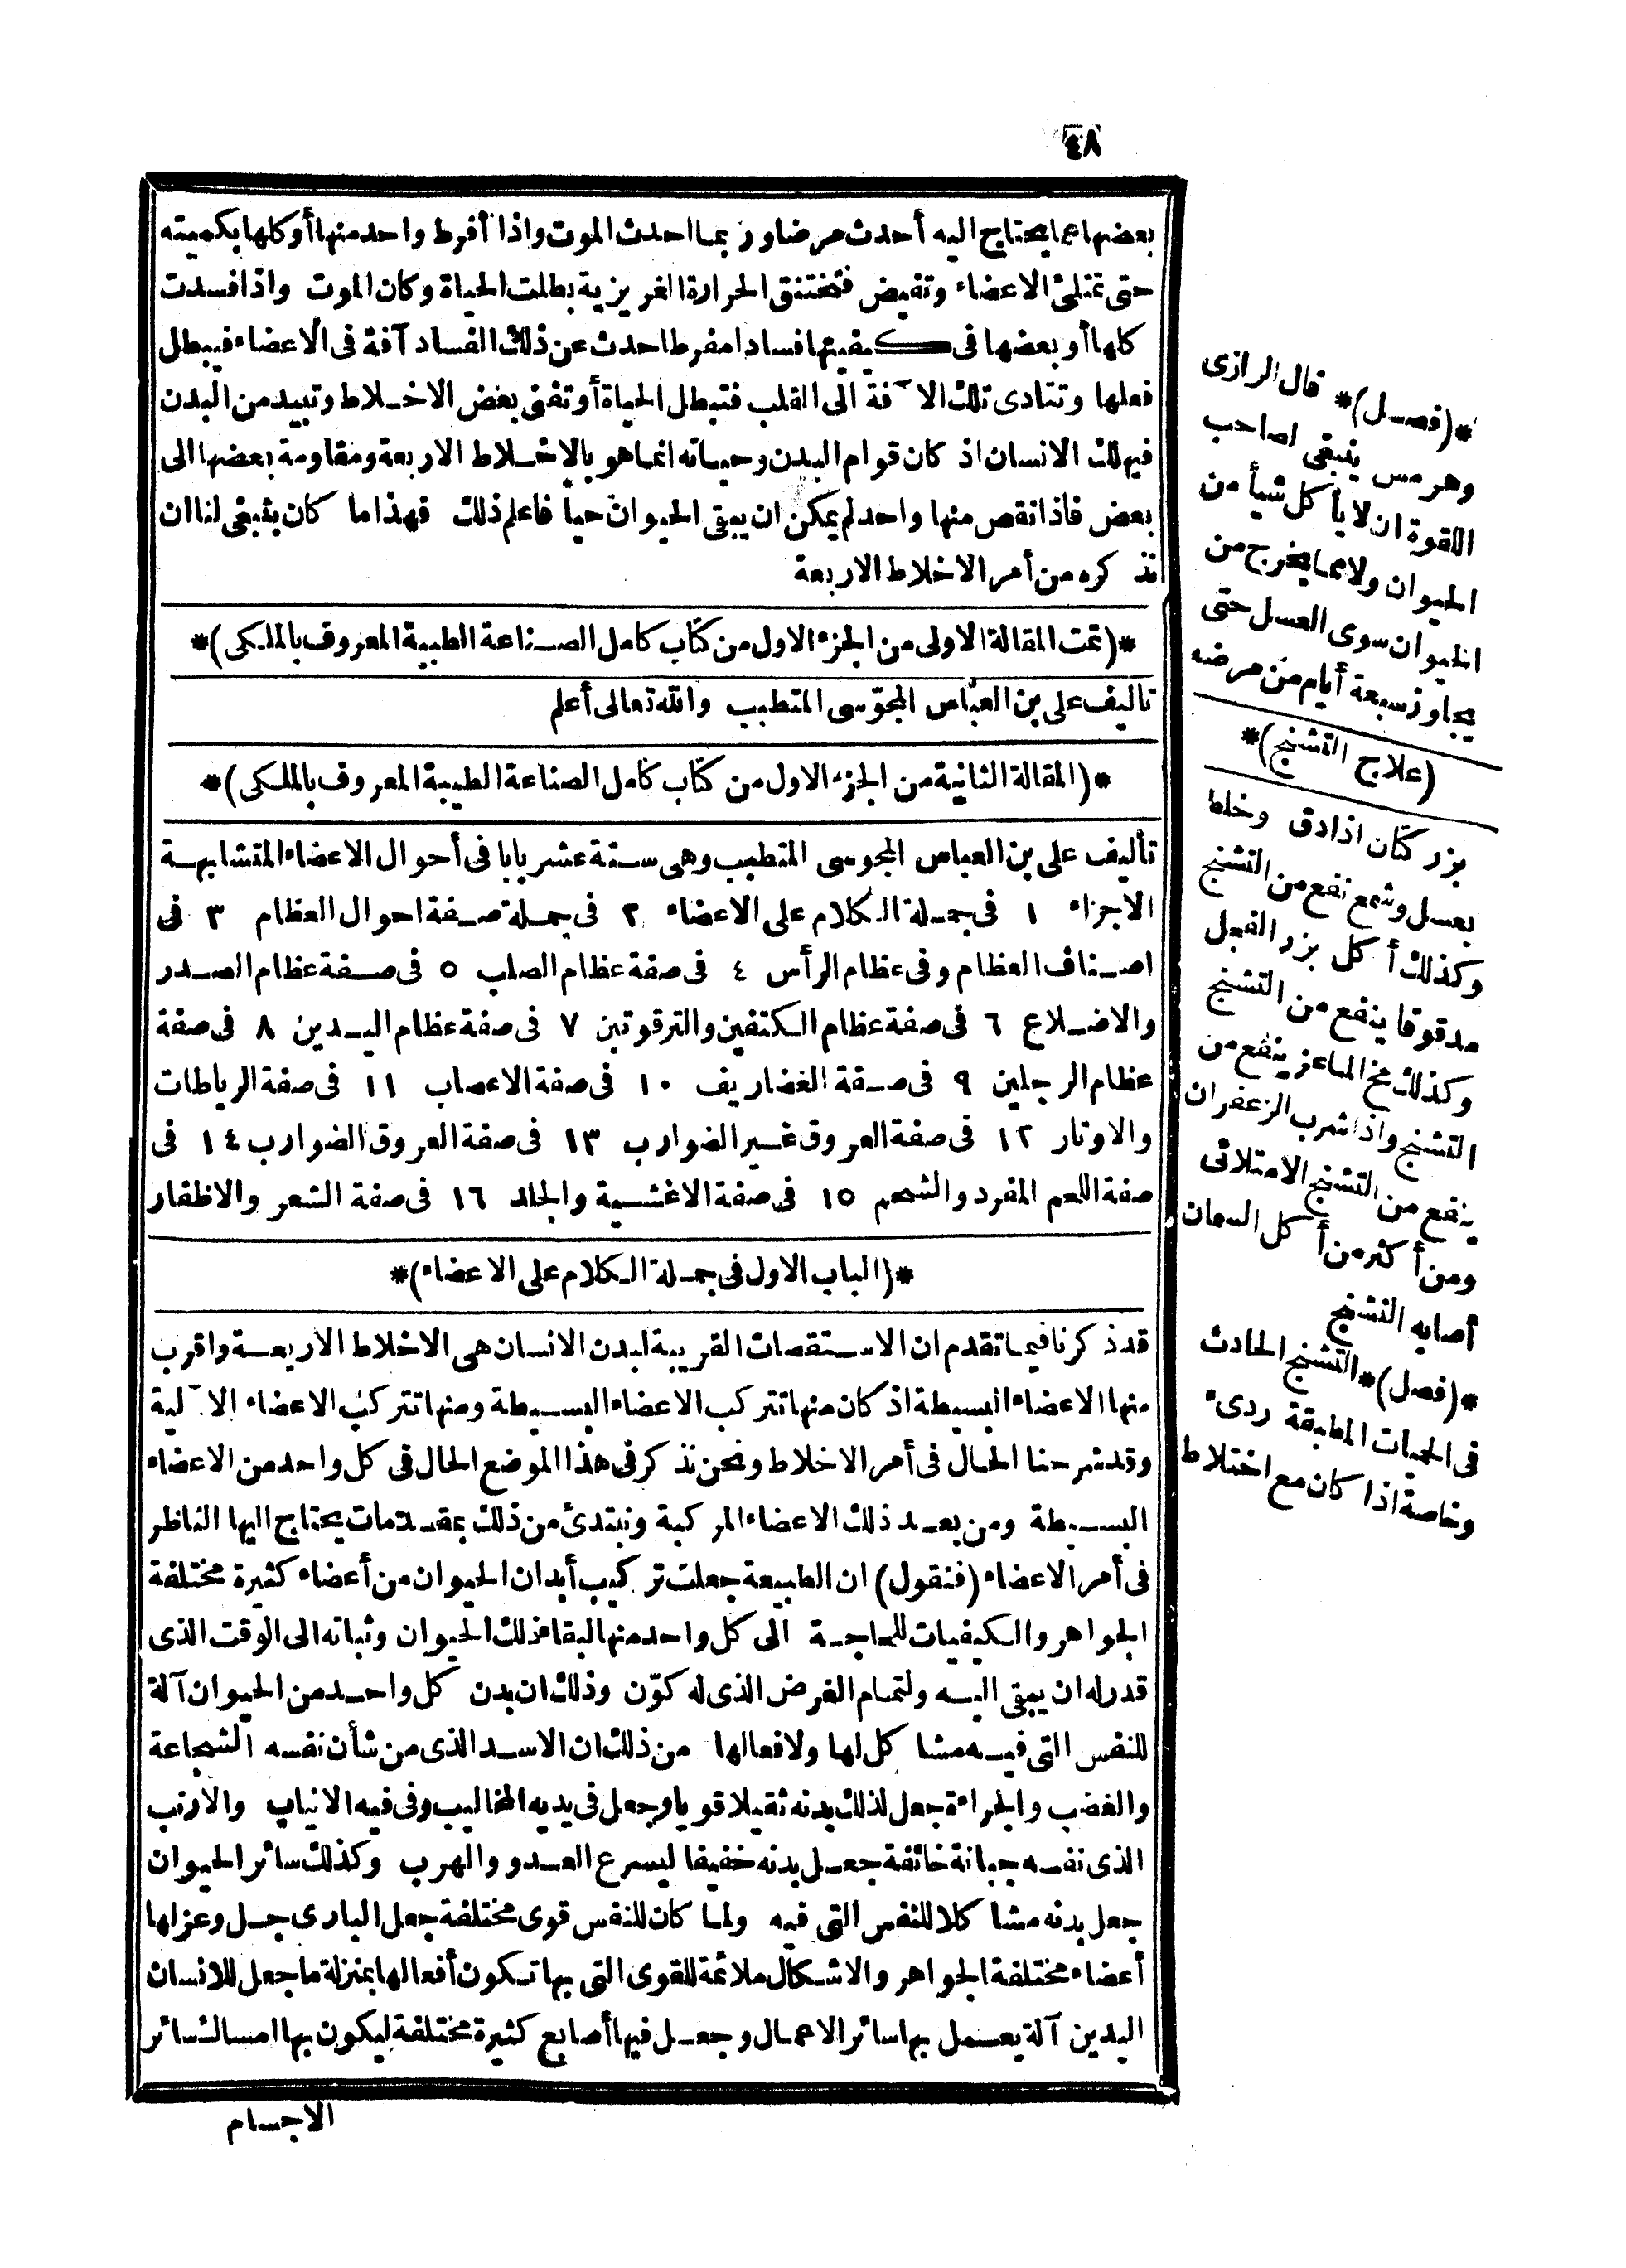 ٨٤
بعضها عما يحتاج اليه أحدث مرضا وربما احدث الموت واذا أفرط واحد منها أو كلها بكميته
حتى تمتلئ الاعضاء وتفيض فتختنق الحرارة الغريزية بطلت الحياة وكان الموت واذا فسدت
كلها أو بعضها فى كيفيتها فسادا مفرطا حدث عن ذلك الفساد آفة فى الاعضاء فيبطل
فعلها وتتادى تلك الآفة الى القلب فتبطل الحياة أو تفنى بعض الاخلاط وتبيد من البدن
فيهلك الانسان اذ كان قوام البدن وحياته انما هو بالاخلاط الاربعة ومقاومة بعضها الى
بعض فاذا نقص منها واحد لم يمكن ان يبقى الحيوان حيا فاعلم ذلك فهذا ما كان ينبغى لنا ان
نذكره من أمر الاخلاط الاربعة
*(تمت المقالة الاولى من الجزء الاول من كتاب كامل الصناعة الطبية المعروف بالملكى)*
تاليف على بن العباس المجوسى المتطبب والله تعالى أعلم
*(المقالة الثانية من الجزء الاول من كتاب كامل الصناعة الطبية المعروف بالملكى)*
تأليف على بن العباس المجوسى المتطبب وهى ستة عشر بابا فى أحوال الاعضاء المتشابهة
الاجزاء ١ فى جملة الكلام على الاعضاء ٢ فى جملة صفة احوال العظام ٣ فى
اصناف العظام وفى عظام الرأس ٤ فى صفة عظام الصلب ٥ فى صفة عظام الصدر
والاضلاع ٦ فى صفة عظام الكتفين والترقوتين ٧ فى صفة عظام اليدين ٨ فى صفة
عظام الرجلين ٩ فى صفة الغضاريف ١٠ فى صفة الاعصاب ١١ فى صفة الرباطات
والاوتار ١٢ فى صفة العروق غير الضوارب ١٣ فى صفة العروق الضوارب ١٤ فى
صفة اللحم المفرد والشحم ١٥ فى صفة الاغشية والجلد ١٦ فى صفة الشعر والاظفار
*(الباب الاول فى جملة الكلام على الاعضاء)*
قد ذكرنا فيما تقدم ان الاستقصات القريبة لبدن الانسان هى الاخلاط الاربعة واقرب
منها الاعضاء البسيطة اذ كان منها تتركب الاعضاء البسيطة ومنها تتركب الاعضاء الآلية
وقد شرحنا الحال فى أمر الاخلاط ونحن نذكر فى هذا الموضع الحال فى كل واحد من الاعضاء
البسيطة ومن بعد ذلك الاعضاء المركبة ونبتدئ من ذلك بمقدمات يحتاج اليها الناظر
فى أمر الاعضاء (فنقول) ان الطبيعة جعلت تركيب أبدان الحيوان من أعضاء كثيرة مختلفة
الجواهر والكيفيات للحاجة الى كل واحد منها لبقاء ذلك الحيوان وثباته الى الوقت الذى
قدر له ان يبقى اليه ولتمام الغرض الذى له كوّن وذلك ان بدن كل واحد من الحيوان آلة
للنفس التى فيه مشاكل لها ولافعالها من ذلك ان الاسد الذى من شأن نفسه الشجاعة
والغضب والجراءة جعل لذلك بدنه ثقيلا قويا وجعل فى يديه المخاليب وفى فيه الانياب والارنب
الذى نفسه جبانة خائفة جعل بدنه خفيفا ليسرع العدو والهرب وكذلك سائر الحيوان
جعل بدنه مشاكلا للنفس التى فيه ولما كان للنفس قوى مختلفة جعل البارى جل وعز لها
أعضاء مختلفة الجواهر والاشكال ملائمة للقوى التى بها تكون أفعالها بمنزلة ما جعل للانسان
اليدين آلة يعمل بها سائر الاعمال وجعل فيها أصابع كثيرة مختلفة ليكون بها امساك سائر
الاجسام
*(فصل)* قال الرازى
وهرمس ينبغى لصاحب
اللقوة ان لا يأكل شيأ من
الحيوان ولا مما يخرج من
الحيوان سوى العسل حتى
يجاوز سبعة أيام من مرضه
(علاج التشنج)*
بزر كتان اذا دق وخلط
بعسل وشمع نفع من التشنج
وكذلك أكل بزر الفجل
مدقوقا ينفع من التشنج
وكذلك مخ الماعز ينفع من
التشنج واذا شرب الزعفران
ينفع من التشنج الامتلائى
ومن أكثر من أكل السمان
أصابه التشنج
*(فصل)* التشنج الحادث
فى الحميات المطبقة ردىء
وخاصة اذا كان مع اختلاط